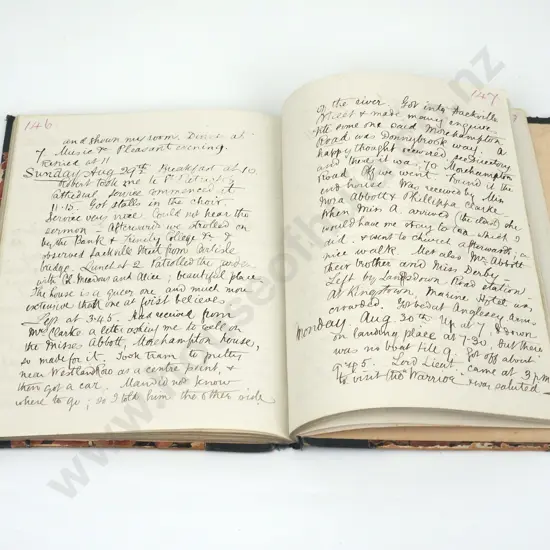 146
and shown my room. Dinner at
7. Music & Pleasant evening.
Retired at 11
Sunday Aug 29th Breakfast at 10.
Robert took me to St Patrick's
Cathedral service commenced at
11.15. Got stalls in the choir.
Service very nice. Could not hear the
sermon. Afterwards we strolled on
by the Bank & Trinity College &c &
observed Sackville Street from Carlisle
bridge. Lunch at 2. Patrolled the
with Ch. Meadows and Alice; beautiful place
The house is a queer one and much more
extensive than one at first believes
Left at 3.45. Had received from
Mrs Clarke a letter asking me to call on
the Misses Abbott, Morehampton House,
so made for it. Took tram to
near Westland Row as a centre point, &
then got a car. Man did not know
where to go; so I told him the other side
147
of the river. Got into Sackville
Street & made many enquiries.
At last some one said Morehampton
Road was Donnybrook way. A
happy thought occurred, see Directory
and there it was, 70 Morehampton
Road. Off we went. Found it the
end house. Was received by Miss
Nora Abbott & Phillippa Clarke.
When Miss A. arrived (the elder) she
would have me stay to tea which I
did. & went to church afterwards, a
nice walk. Met also Mr Abbott
their brother and Miss Derby.
Left by Lansdown Road station
At Kingstown Marine Hotel was
crowded. Got bed at Anglesey Arms
Monday Aug 30th Up at 7. Down
on landing place at 7.30, but there
was no boat till 9. Got off about
9.45. Lord Lieut. came at 3 p.m.
to visit the "Warrior" was saluted